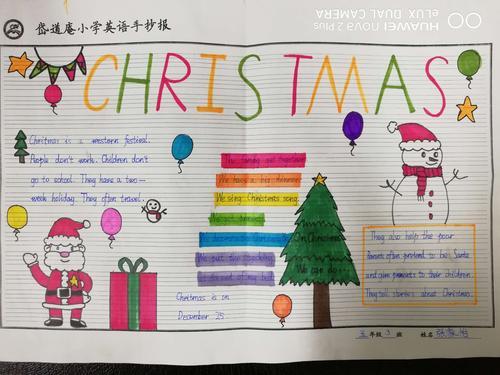 岱道庵小学英语手抄报
HUAWEI nova 2 Plus
eLUX DUAL CAMERA
CHRISTMAS
Christmas is a western festival.
People don't work. Children don't
go to school. They have a two-
week holiday. They often travel.
The family get together
We have a big dinner.
We sing Christmas song.
On Christmas
We can do...
Christmas is on
December 25.
They also help the poor
often pretend to be Santa
and give presents to their children.
They tell stories about Christmas.
五年级3班
姓名